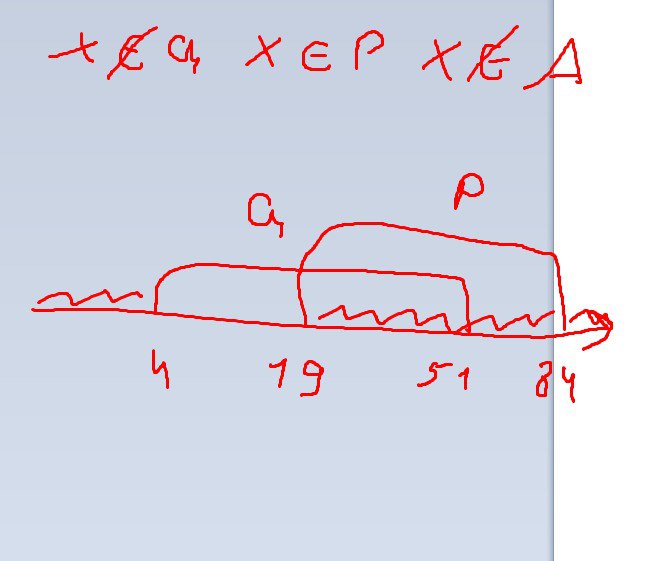 x ∉ Q x ∈ P x ∉ A
Q P
4 19 51 84